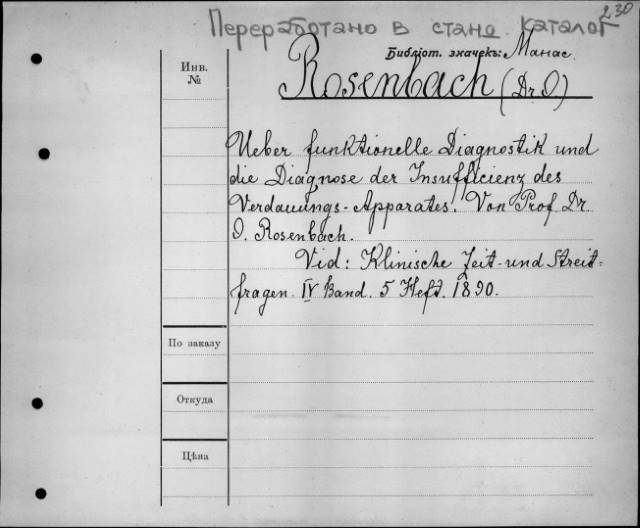 230
Переработано в стано. каталог
Библіот. значекъ: Манас.
Инв.
№
Rosenbach (Dr O)
Ueber funktionelle Diagnostik und
die Diagnose der Insufficienz des
Verdauungs-Apparates. Von Prof Dr.
O. Rosenbach.
Vid: Klinische Zeit- und Streit-
fragen. IV Band. 5 Heft. 1890.
По заказу
Откуда
Цѣна